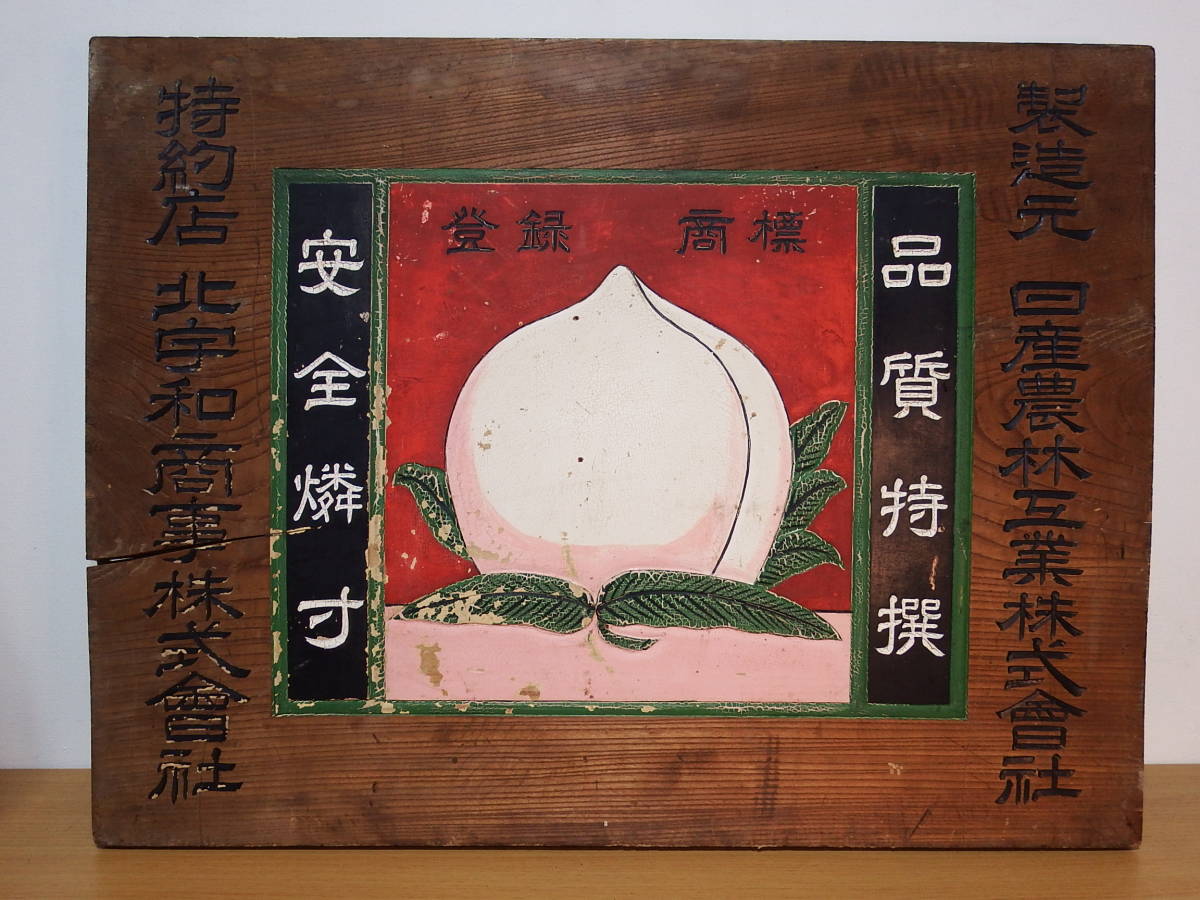 製造元 日産農林工業株式會社
品質特撰
登録 商標
安全燐寸
特約店 北宇和商事株式會社